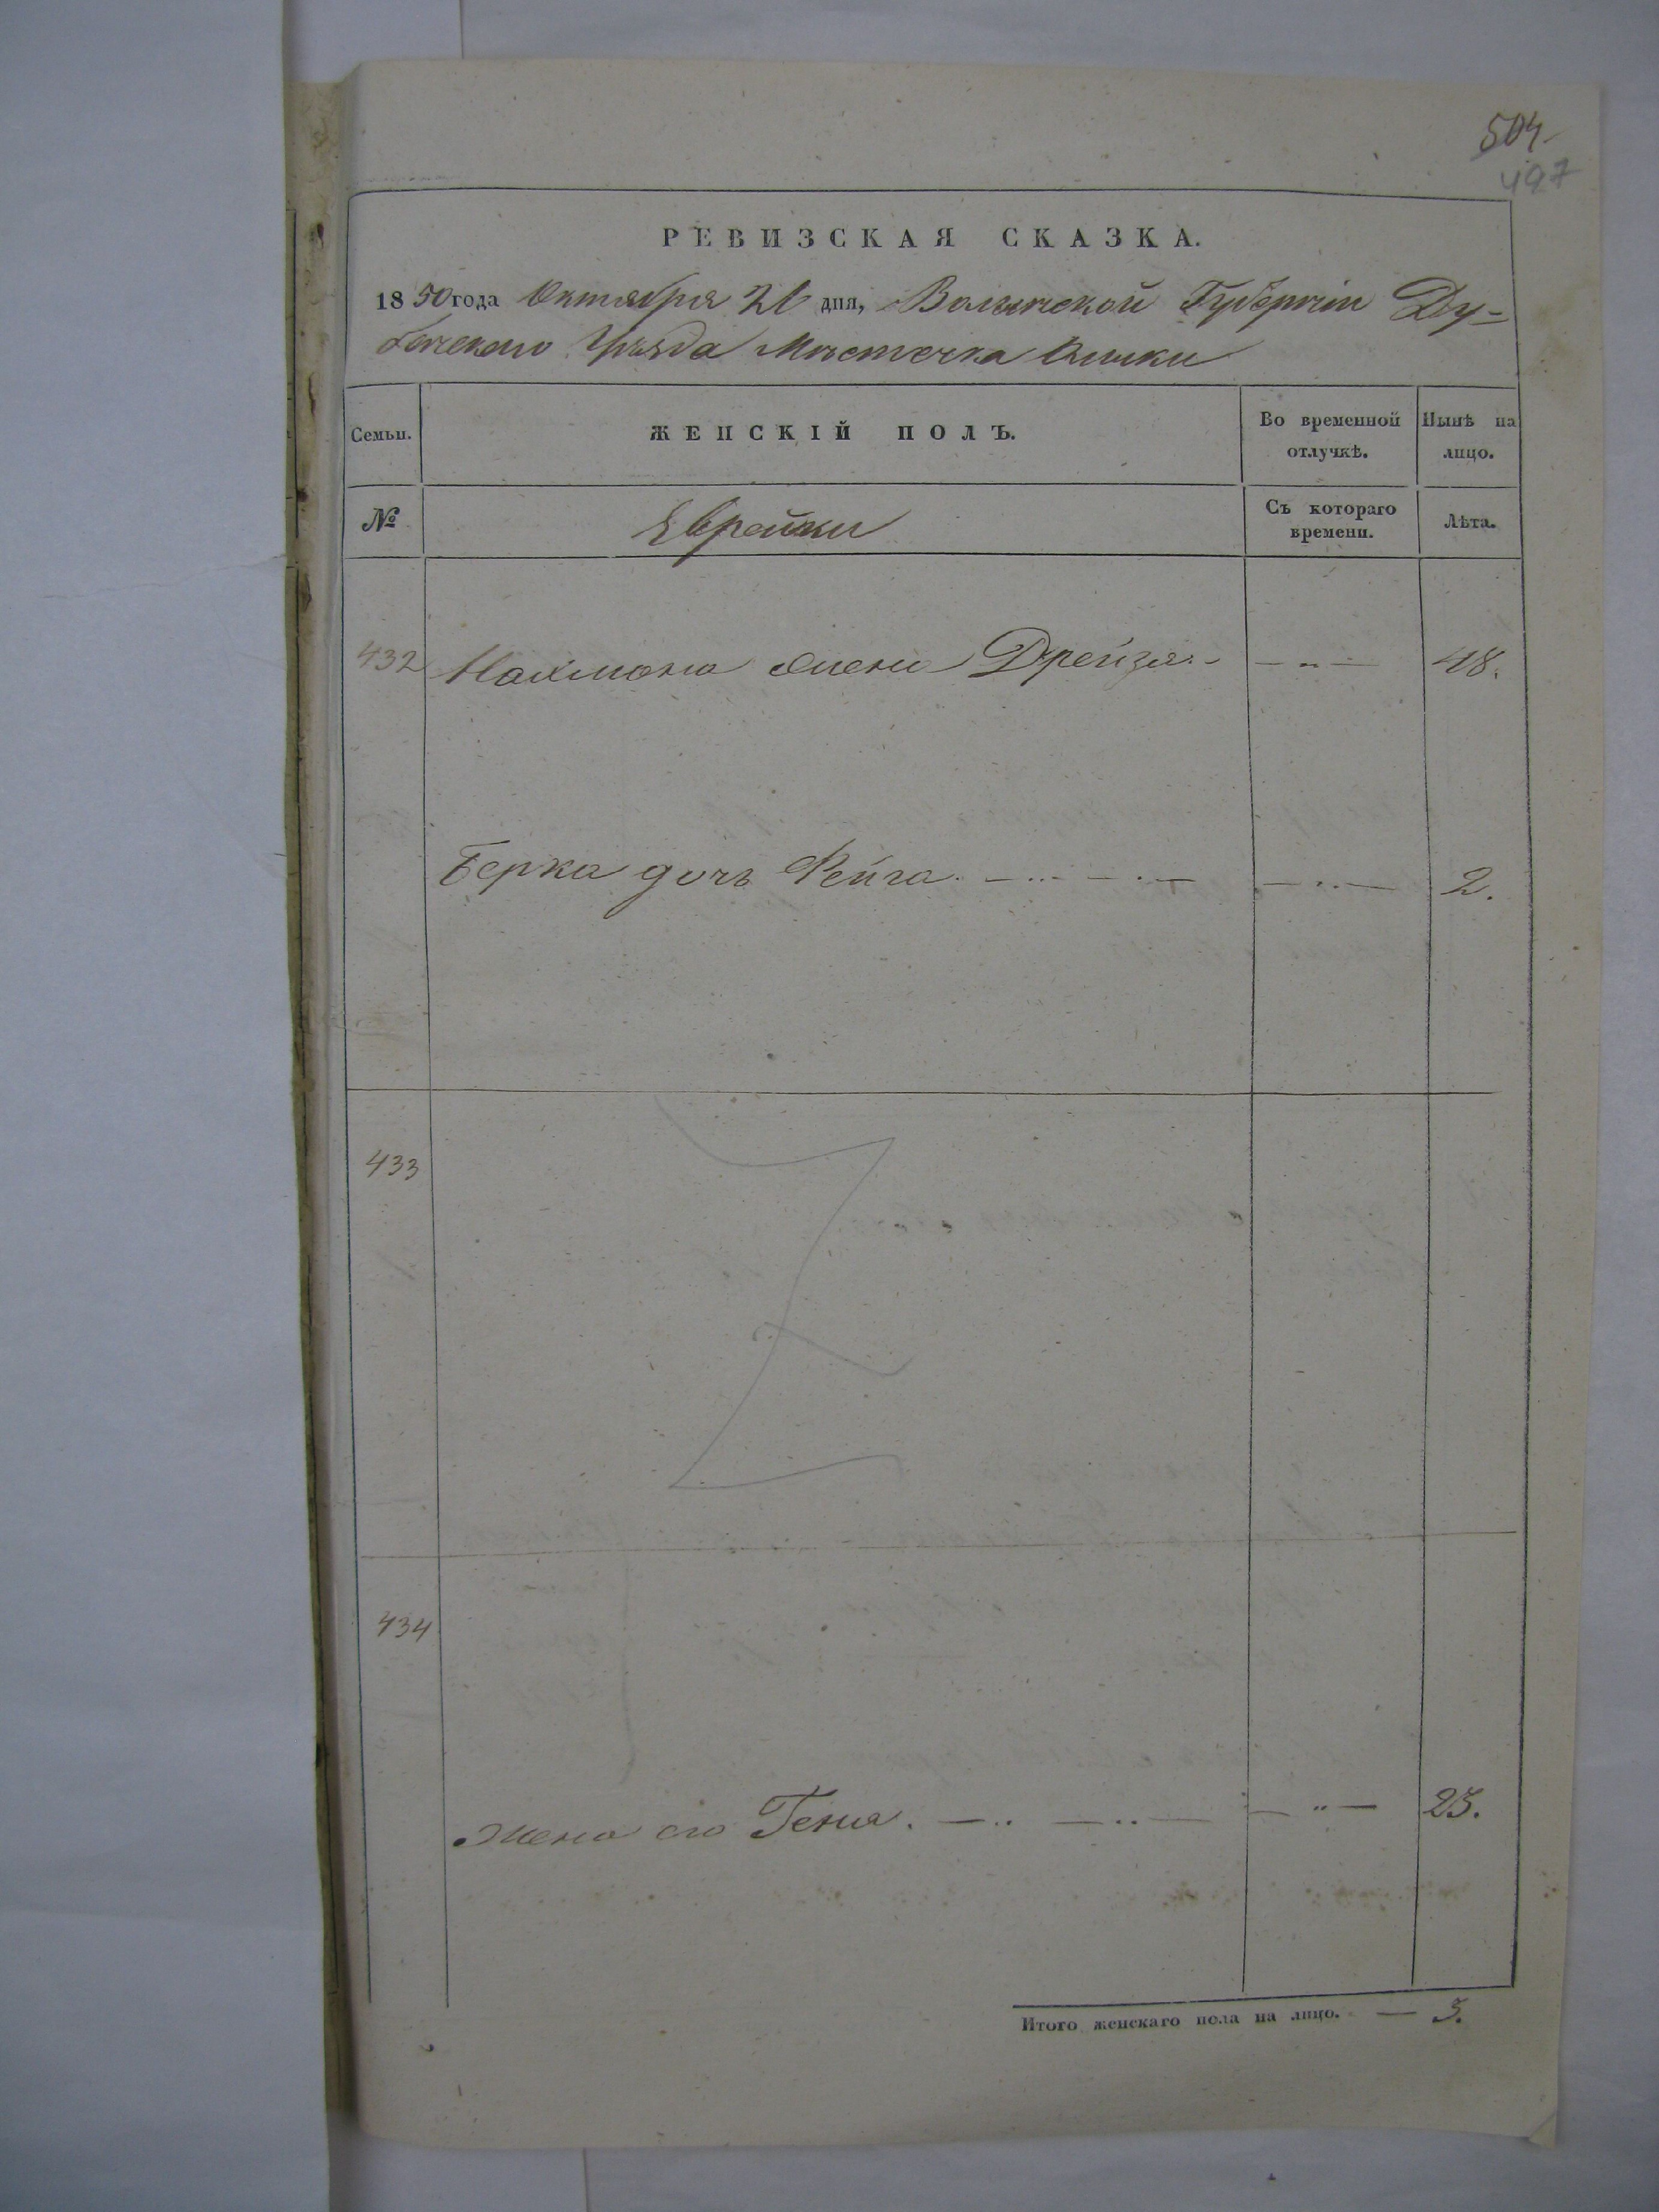 504
497
РЕВИЗСКАЯ СКАЗКА.
1850 года Октября 26 дня, Волынской Губерніи Ду-
бенскаго Уѣзда Мѣстечка Олыки
Семьи.
ЖЕНСКІЙ ПОЛЪ.
Во временной отлучкѣ.
Нынѣ на лицо.
№
Еврейки
Съ котораго времени.
Лѣта.
432 Нахмана жена Дрейзя. 48.
Берка дочь Фейга. 2.
433
434
Жена его Геня. 23.
Итого женскаго пола на лицо. — 3.